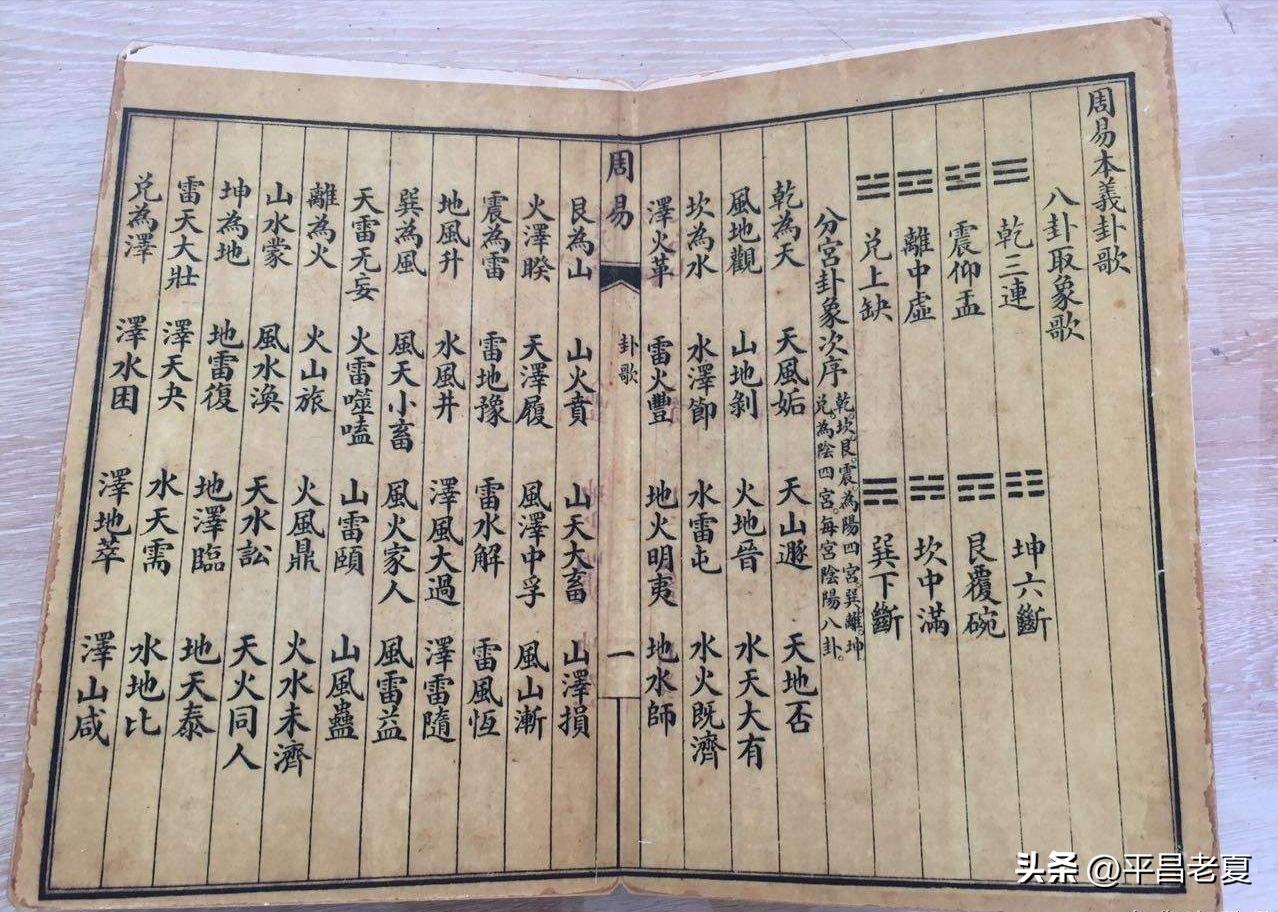 周易本義卦歌
八卦取象歌
☰ 乾三連 ☷ 坤六斷
☳ 震仰盂 ☶ 艮覆碗
☲ 離中虛 ☵ 坎中滿
☱ 兌上缺 ☴ 巽下斷
分宮卦象次序 乾。坎。艮。震為陽四宮。巽。離。坤
兌。為陰四宮。每宮陰陽八卦。
乾為天 天風姤 天山遯 天地否
風地觀 山地剝 火地晉 水天大有
坎為水 水澤節 水雷屯 水火既濟
澤火革 雷火豐 地火明夷 地水師
周易 卦歌 一
艮為山 山火賁 山天大畜 山澤損
火澤睽 天澤履 風澤中孚 風山漸
震為雷 雷地豫 雷水解 雷風恆
地風升 水風井 澤風大過 澤雷隨
巽為風 風天小畜 風火家人 風雷益
天雷无妄 火雷噬嗑 山雷頤 山風蠱
離為火 火山旅 火風鼎 火水未濟
山水蒙 風水渙 天水訟 天火同人
坤為地 地雷復 地澤臨 地天泰
雷天大壯 澤天夬 水天需 水地比
兌為澤 澤水困 澤地萃 澤山咸
头条 @平昌老夏